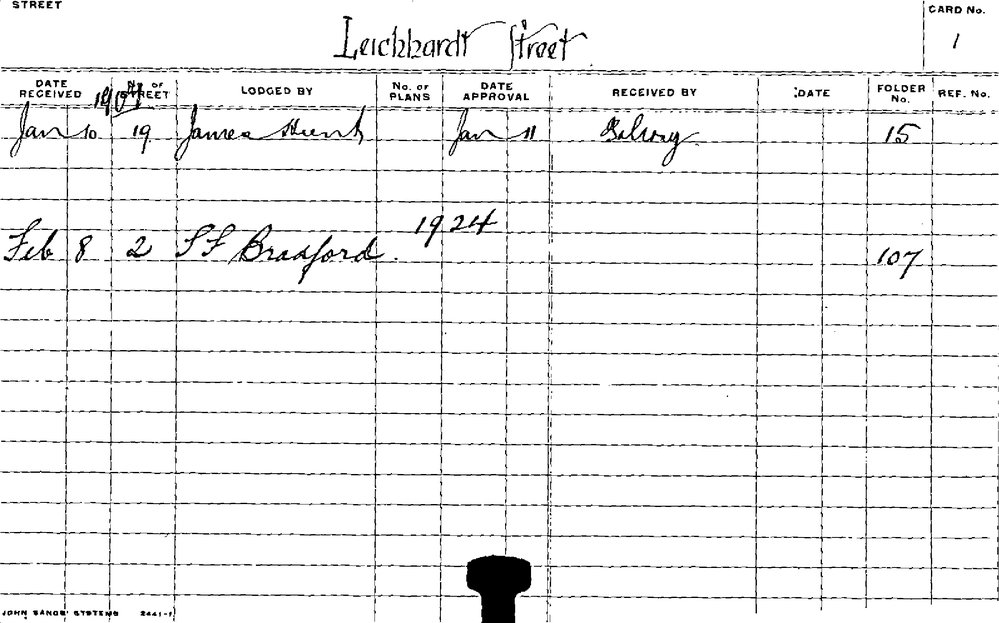 STREET
CARD No.
Leichhardt Street
1
DATE RECEIVED No. OF STREET LODGED BY No. OF PLANS DATE APPROVAL RECEIVED BY DATE FOLDER No. REF. No.
Jan 10 19 James Hunt Jan 11 15
1924
Feb 8 2 Bradford. 107
JOHN SANDS' SYSTEMS 2441-1